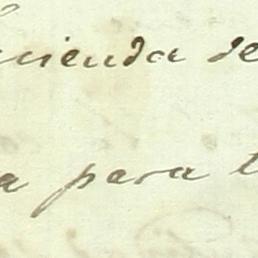 cienda de
a para